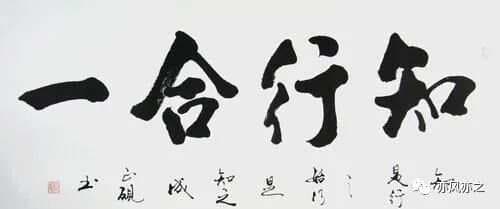 知行合一
知是行之始行是知之成
正硯书
亦风亦之